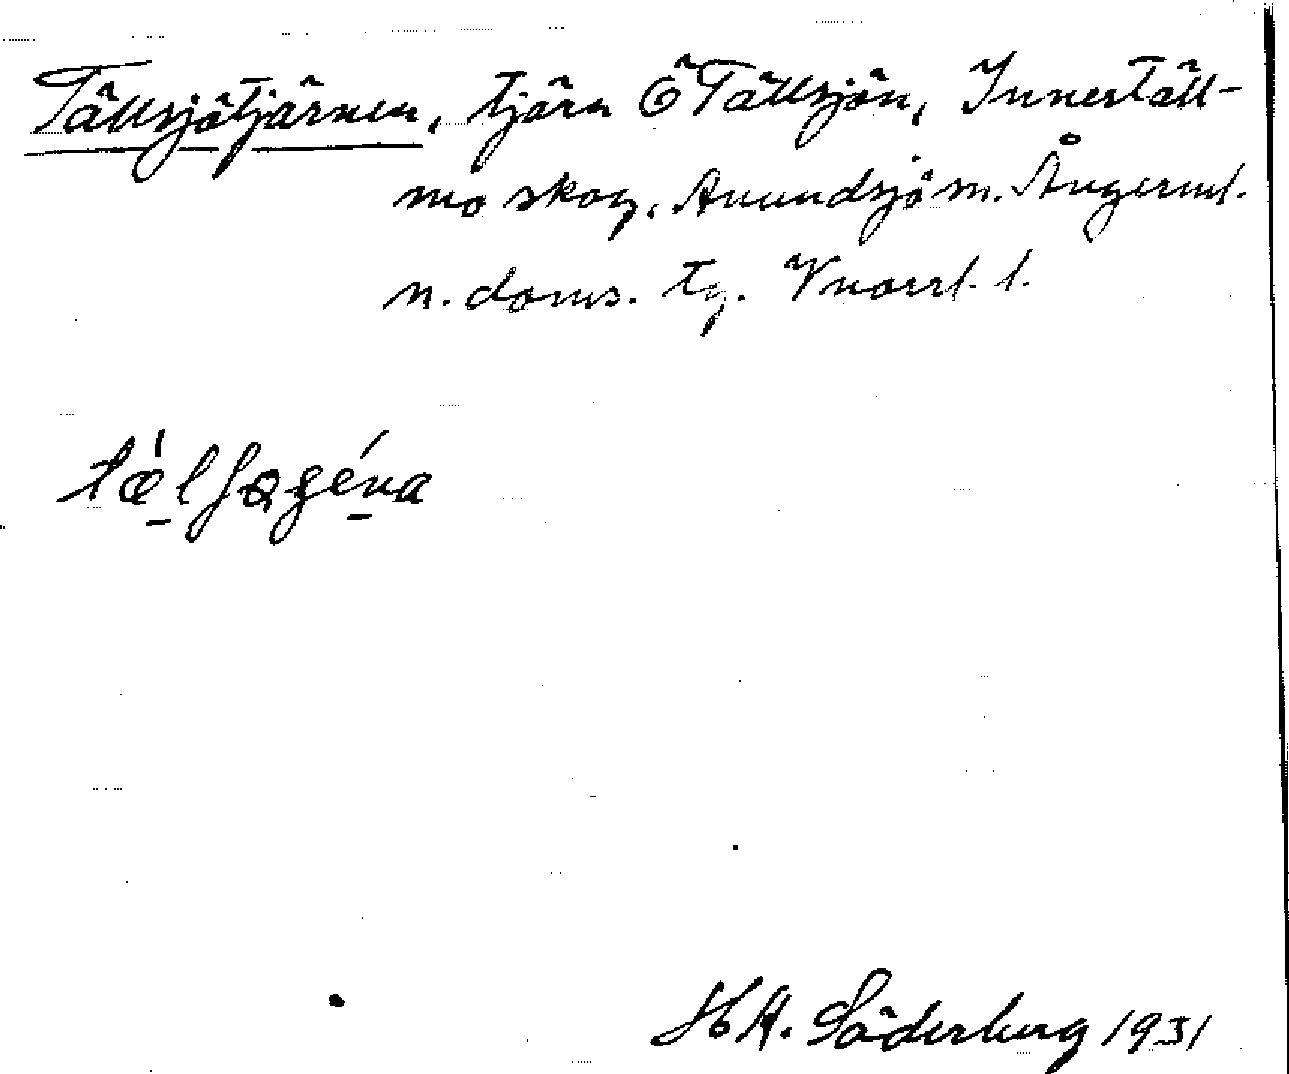 Tällsjötjärnen, tjärn Ö Tällsjön, Innertäll-
mo skog, Anundsjö sn. Ångerml.
n. doms. tg. Vnorrl. l.
H A. Söderberg 1931